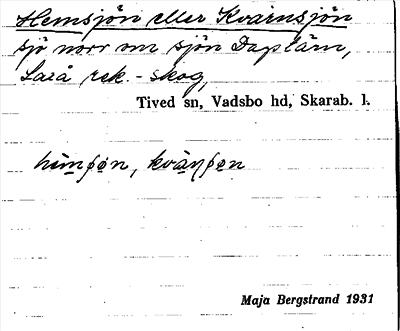 Hemsjön eller Kvarnsjön
sjö norr om sjön Daplärn,
Laxå rek. - skog,
Tived sn, Vadsbo hd, Skarab. l.
Maja Bergstrand 1931